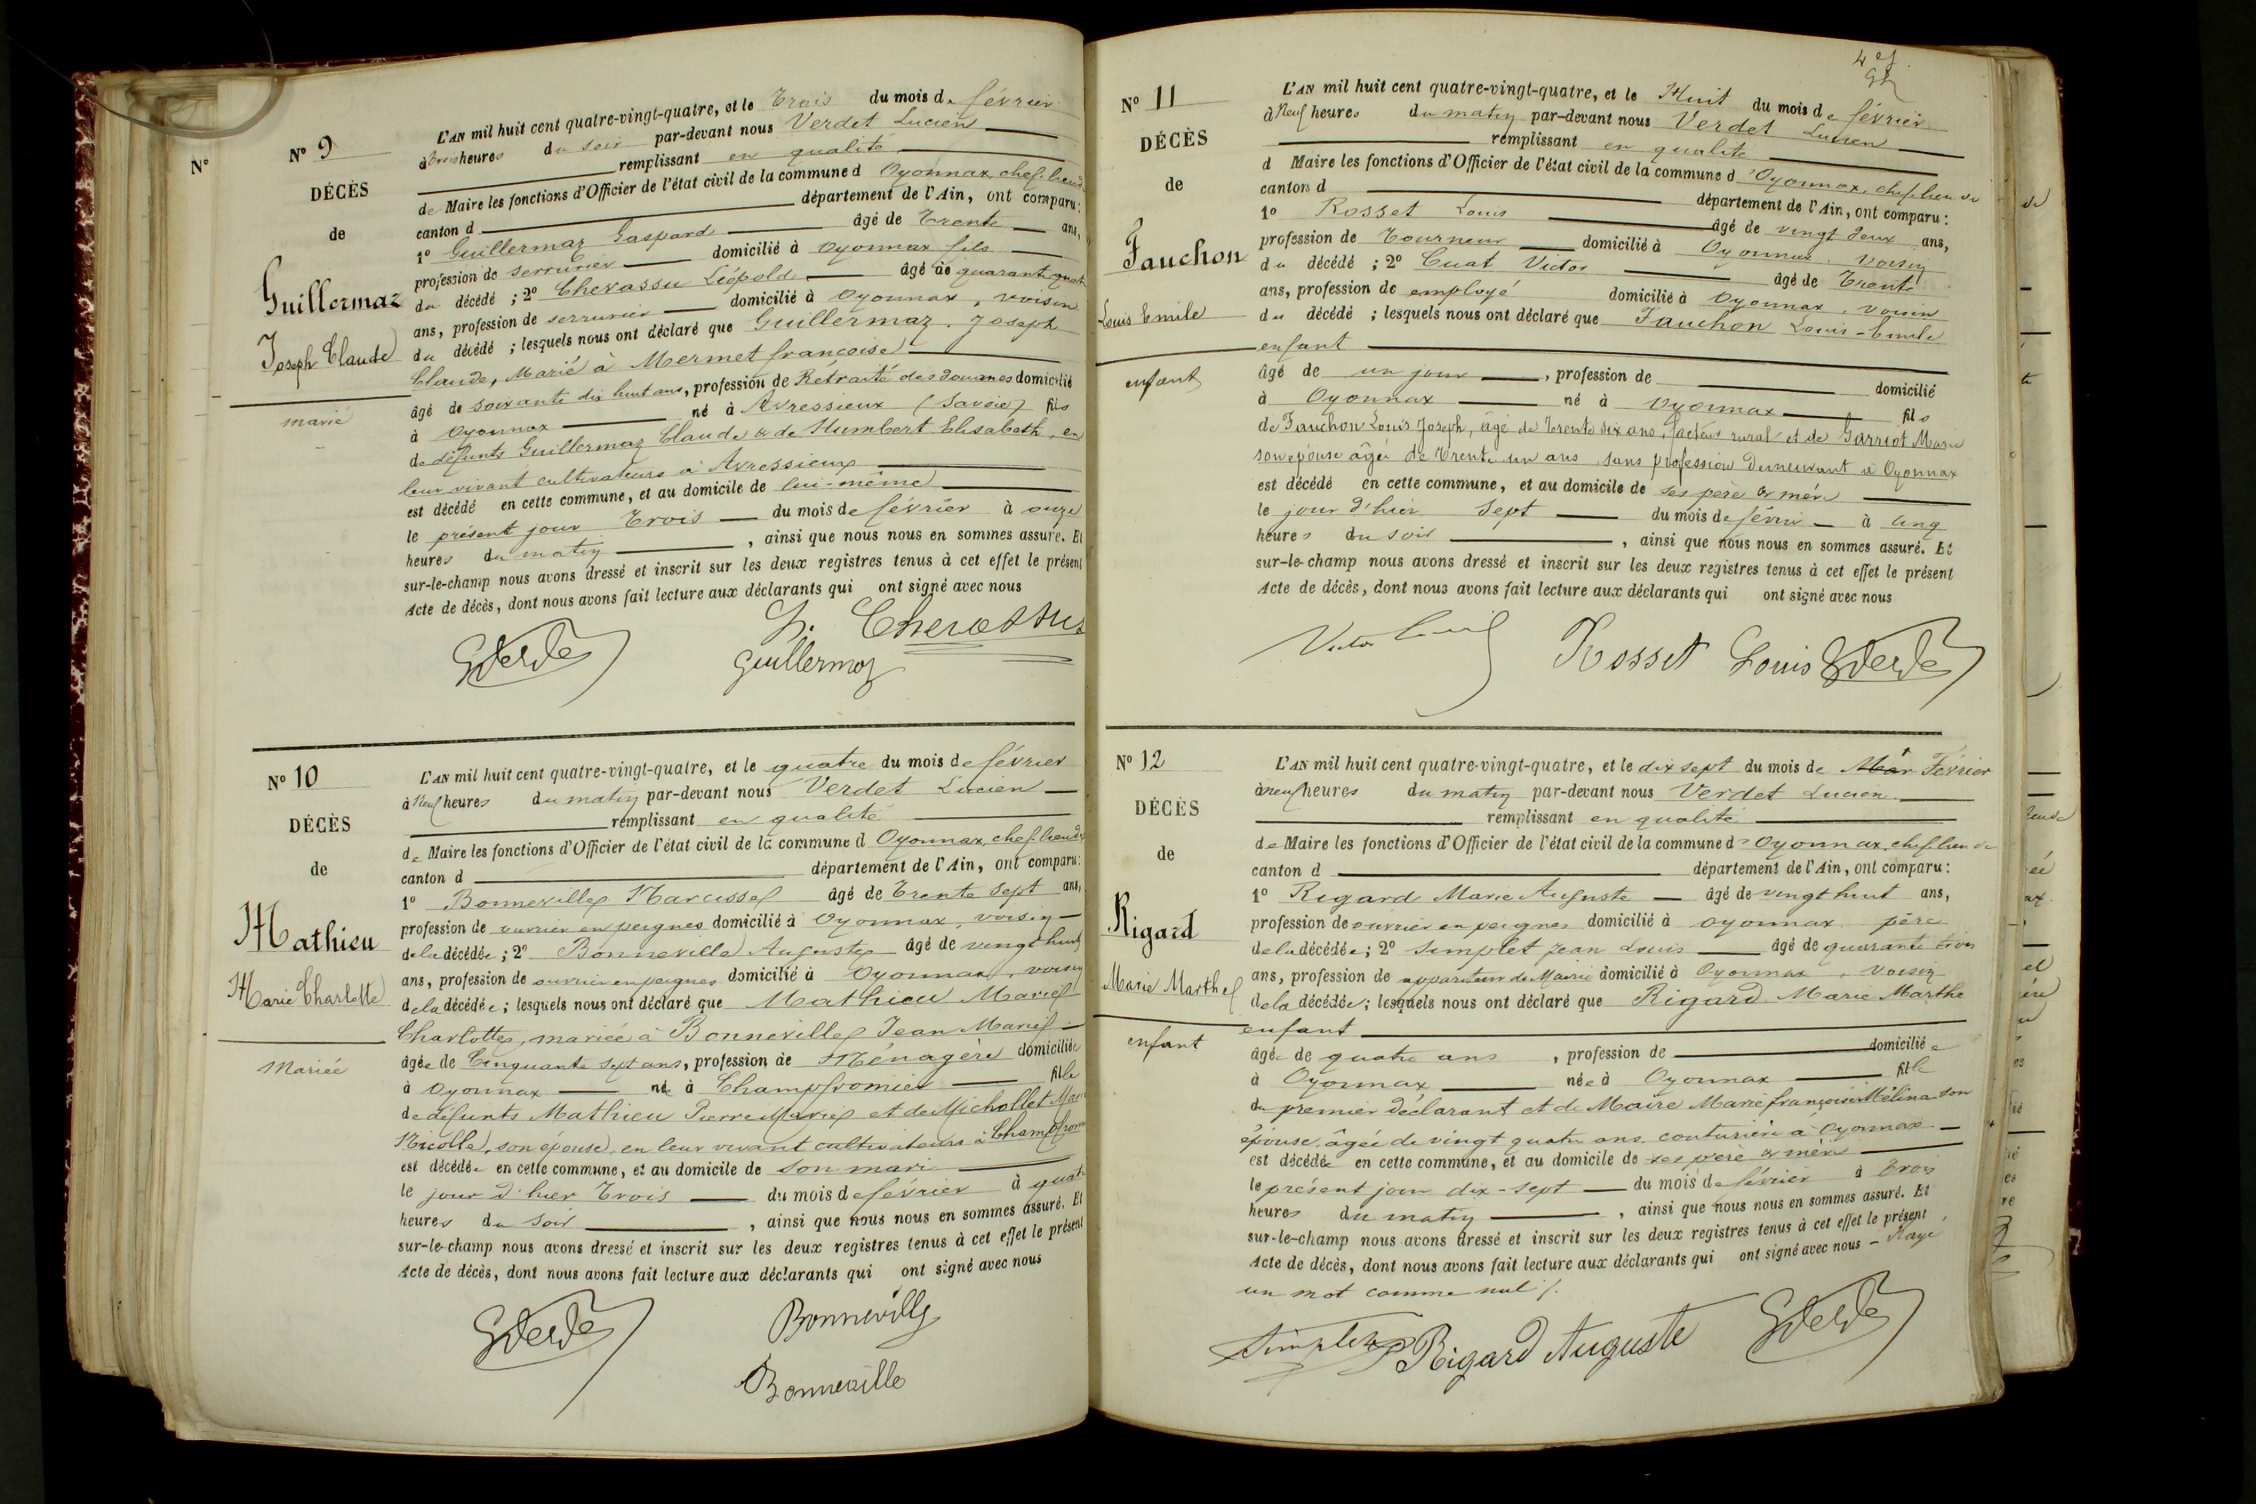 N°
N° 9
DÉCÈS
de
Guillermaz
Joseph Claude
marié
L'AN mil huit cent quatre-vingt-quatre, et le Trois du mois de février
à trois heures du soir par-devant nous Verdet Lucien
remplissant en qualité
de Maire les fonctions d'Officier de l'état civil de la commune d Oyonnax, chef lieu de
canton d département de l'Ain, ont comparu:
1° Guillermaz Gaspard âgé de Trente ans,
profession de serrurier domicilié à Oyonnax fils
du décédé ; 2° Chevassu Léopold âgé de quarante quatre
ans, profession de serrurier domicilié à Oyonnax, voisin
du décédé ; lesquels nous ont déclaré que Guillermaz Joseph
Claude, Marié à Mermet françoise
âgé de soixante dix huit ans, profession de Retraité des douanes domicilié
à Oyonnax né à Avressieux (Savoie) fils
de défunts Guillermaz Claude & de Humbert Elisabeth, en
leur vivant cultivateurs à Avressieux
est décédé en cette commune, et au domicile de lui-même
le présent jour Trois du mois de février à onze
heures du matin, ainsi que nous nous en sommes assuré. Et
sur-le-champ nous avons dressé et inscrit sur les deux registres tenus à cet effet le présent
Acte de décès, dont nous avons fait lecture aux déclarants qui ont signé avec nous
L. Chevassus
Guillermoz
N° 10
DÉCÈS
de
Mathieu
Marie Charlotte
Mariée
L'AN mil huit cent quatre-vingt-quatre, et le quatre du mois de février
à Neuf heures du matin par-devant nous Verdet Lucien
remplissant en qualité
de Maire les fonctions d'Officier de l'état civil de la commune d Oyonnax, chef lieu de
canton d département de l'Ain, ont comparu:
1° Bonneville Narcisse âgé de Trente sept ans,
profession de ouvrier en peignes domicilié à Oyonnax, voisin
de la décédée ; 2° Bonneville Auguste âgé de vingt huit
ans, profession de ouvrier en peignes domicilié à Oyonnax, voisin
de la décédée ; lesquels nous ont déclaré que Mathieu Marie
Charlotte, mariée à Bonneville Jean Marie
âgée de Cinquante sept ans, profession de Ménagère domiciliée
à Oyonnax né à Champfromier fille
de défunts Mathieu Pierre Marie et de Michollet Marie
Nicolle, son épouse, en leur vivant cultivateurs à Champfromier
est décédée en cette commune, et au domicile de son mari
le jour d'hier Trois du mois de février à quatre
heures du soir, ainsi que nous nous en sommes assuré. Et
sur-le-champ nous avons dressé et inscrit sur les deux registres tenus à cet effet le présent
Acte de décès, dont nous avons fait lecture aux déclarants qui ont signé avec nous
Bonneville
Bonneville
N° 11
DÉCÈS
de
Fauchon
Louis Emile
enfant
L'AN mil huit cent quatre-vingt-quatre, et le Huit du mois de février
à Neuf heures du matin par-devant nous Verdet Lucien
remplissant en qualité
d Maire les fonctions d'Officier de l'état civil de la commune d'Oyonnax, chef lieu de
canton d département de l'Ain, ont comparu:
1° Rosset Louis âgé de vingt deux ans,
profession de Tourneur domicilié à Oyonnax, voisin
du décédé ; 2° Cuat Victor âgé de Trente
ans, profession de employé domicilié à Oyonnax, voisin
du décédé ; lesquels nous ont déclaré que Fauchon Louis-Emile
enfant
âgé de un jour, profession de domicilié
à Oyonnax né à Oyonnax fils
de Fauchon Louis Joseph, âgé de Trente six ans, facteur rural et de Garriot Marie
son épouse âgée de Trente un ans, sans profession Demeurant à Oyonnax
est décédé en cette commune, et au domicile de ses père & mère
le jour d'hier sept du mois de février à cinq
heures du soir, ainsi que nous nous en sommes assuré. Et
sur-le-champ nous avons dressé et inscrit sur les deux registres tenus à cet effet le présent
Acte de décès, dont nous avons fait lecture aux déclarants qui ont signé avec nous
Rosset Louis
N° 12
DÉCÈS
de
Rigard
Marie Marthe
enfant
L'AN mil huit cent quatre-vingt-quatre, et le dix sept du mois de Mar Février
à neuf heures du matin par-devant nous Verdet Lucien
remplissant en qualité
de Maire les fonctions d'Officier de l'état civil de la commune d'Oyonnax, chef lieu de
canton d département de l'Ain, ont comparu:
1° Rigard Marie Auguste âgé de vingt huit ans,
profession de ouvrier en peignes domicilié à Oyonnax père
de la décédée ; 2° Simplet Jean Louis âgé de quarante trois
ans, profession de appariteur de Mairie domicilié à Oyonnax, voisin
de la décédée ; lesquels nous ont déclaré que Rigard Marie Marthe
enfant
âgée de quatre ans, profession de domiciliée
à Oyonnax née à Oyonnax fille
du premier déclarant et de Maire Marie françoise Mélina son
épouse, âgée de vingt quatre ans, couturière à Oyonnax
est décédée en cette commune, et au domicile de ses père & mère
le présent jour dix-sept du mois de février à Trois
heures du matin, ainsi que nous nous en sommes assuré. Et
sur-le-champ nous avons dressé et inscrit sur les deux registres tenus à cet effet le présent
Acte de décès, dont nous avons fait lecture aux déclarants qui ont signé avec nous - Rayé
un mot comme nul /.
Simplet Rigard Auguste